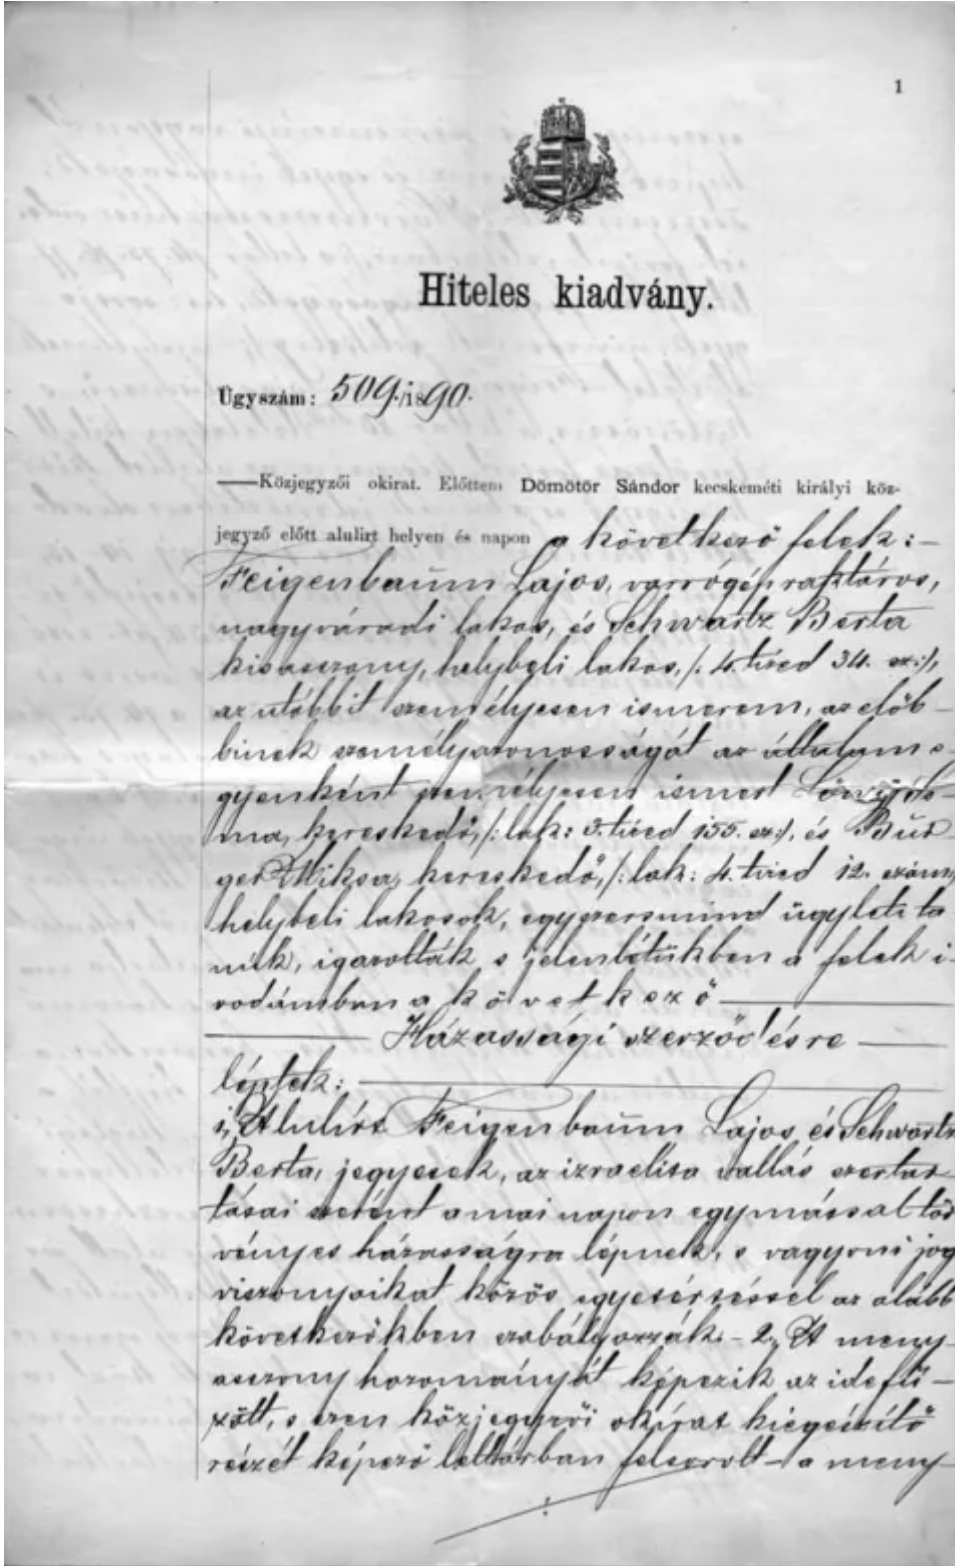 1
Hiteles kiadvány.
Ügyszám: 509./1890.
—Közjegyzői okirat. Előttem Dömötör Sándor kecskeméti királyi köz-
jegyző előtt alulirt helyen és napon a következő felek: –
Feigenbaum Lajos, varrógép raktáros,
nagyváradi lakos, és Schwartz Berta
kisasszony, helybeli lakos, /: 4. tized 34. sz:/,
az utóbbit személyesen ismerem, az előb-
binek személyazonosságát az általam e-
gyenként személyesen ismert
ma, kereskedő, /: lak: 3. tized 155. sz:/, és Bür-
ger Miksa, kereskedő, /: lak: 4. tized 12. szám,
helybeli lakosok, egyszersmind ügyleti ta-
núk, igazolták s jelenlétükben a felek i-
rodámban a következő —
— Házassági szerződésre —
léptek: —
1, Alulírt Feigenbaum Lajos és Schwartz
Berta, jegyesek, az izraelita vallás szertar-
tásai szerint a mai napon egymással tör
vényes házasságra lépnek, s vagyoni jog
viszonyaikat közös egyetértéssel az alább
következőkben szabályozzák. – 2, A meny-
asszony hozományát képezik az idefű-
zött, s ezen közjegyzői okirat kiegészítő
részét képező leltárban felsorolt – a meny-